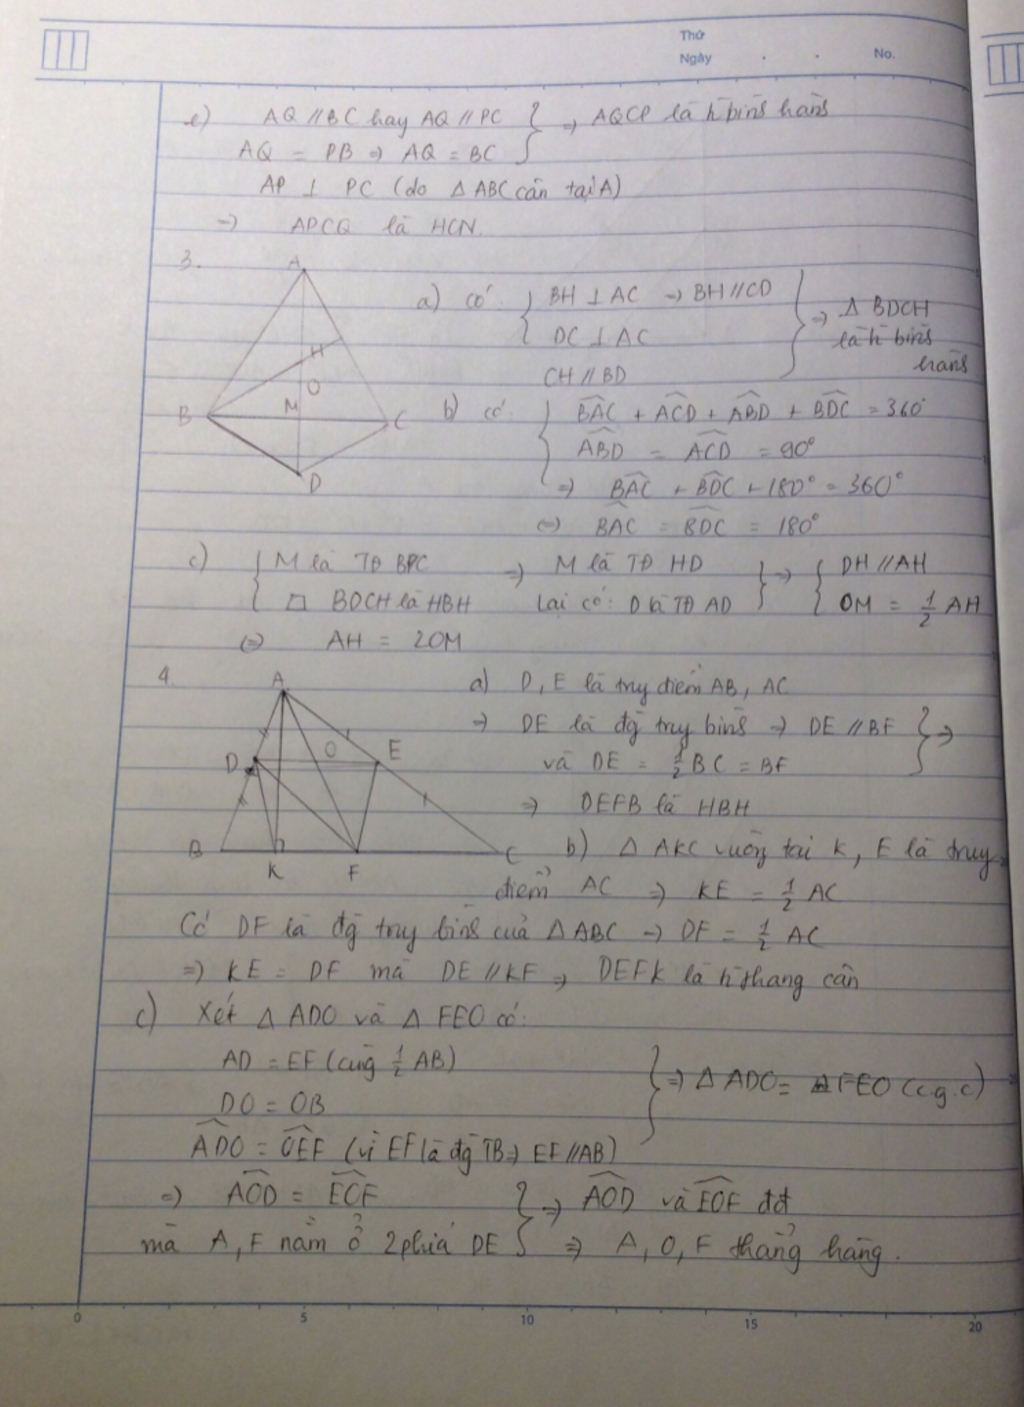 Thứ
Ngày . . No.
e) AQ // BC hay AQ // PC } => AQCP là h bình hành
AQ = PB => AQ = BC
AP ⊥ PC (do Δ ABC cân tại A)
=> APCQ là HCN.
3.
A
H
O
M
B
C
D
a) có: { BH ⊥ AC -> BH // CD
DC ⊥ AC
CH // BD
=> Δ BDCH
là h bình
hành
b) có: { BAC + ACD + ABD + BDC = 360°
ABD = ACD = 90°
=> BAC + BDC + 180° = 360°
(=) BAC = BDC = 180°
c) { M là TĐ BPC => M là TĐ HD } => { DH // AH
□ BDCH là HBH Lại có: D là TĐ AD OM = 1/2 AH
(=) AH = 2OM
4.
A
D
O
E
B
K
F
C
a) D, E là truy điểm AB, AC
=> DE là đg truy bình -> DE // BF } =>
và DE = 1/2 BC = BF
=> DEFB là HBH
b) Δ AKC vuông tại K, E là truy
điểm AC => KE = 1/2 AC
Có DF là đg truy bình của Δ ABC -> DF = 1/2 AC
=> KE = DF mà DE // KF => DEFK là h thang cân
c) Xét Δ ADO và Δ FEO có:
AD = EF (cùg 1/2 AB)
DO = OB
ADO = OEF (vì EF là đg TB => EF // AB)
} => Δ ADO = Δ FEO (c.g.c)
=> AOD = EOF } => AOD và EOF đđ
mà A, F nằm ở 2 phía DE => A, O, F thẳng hàng.
0 5 10 15 20